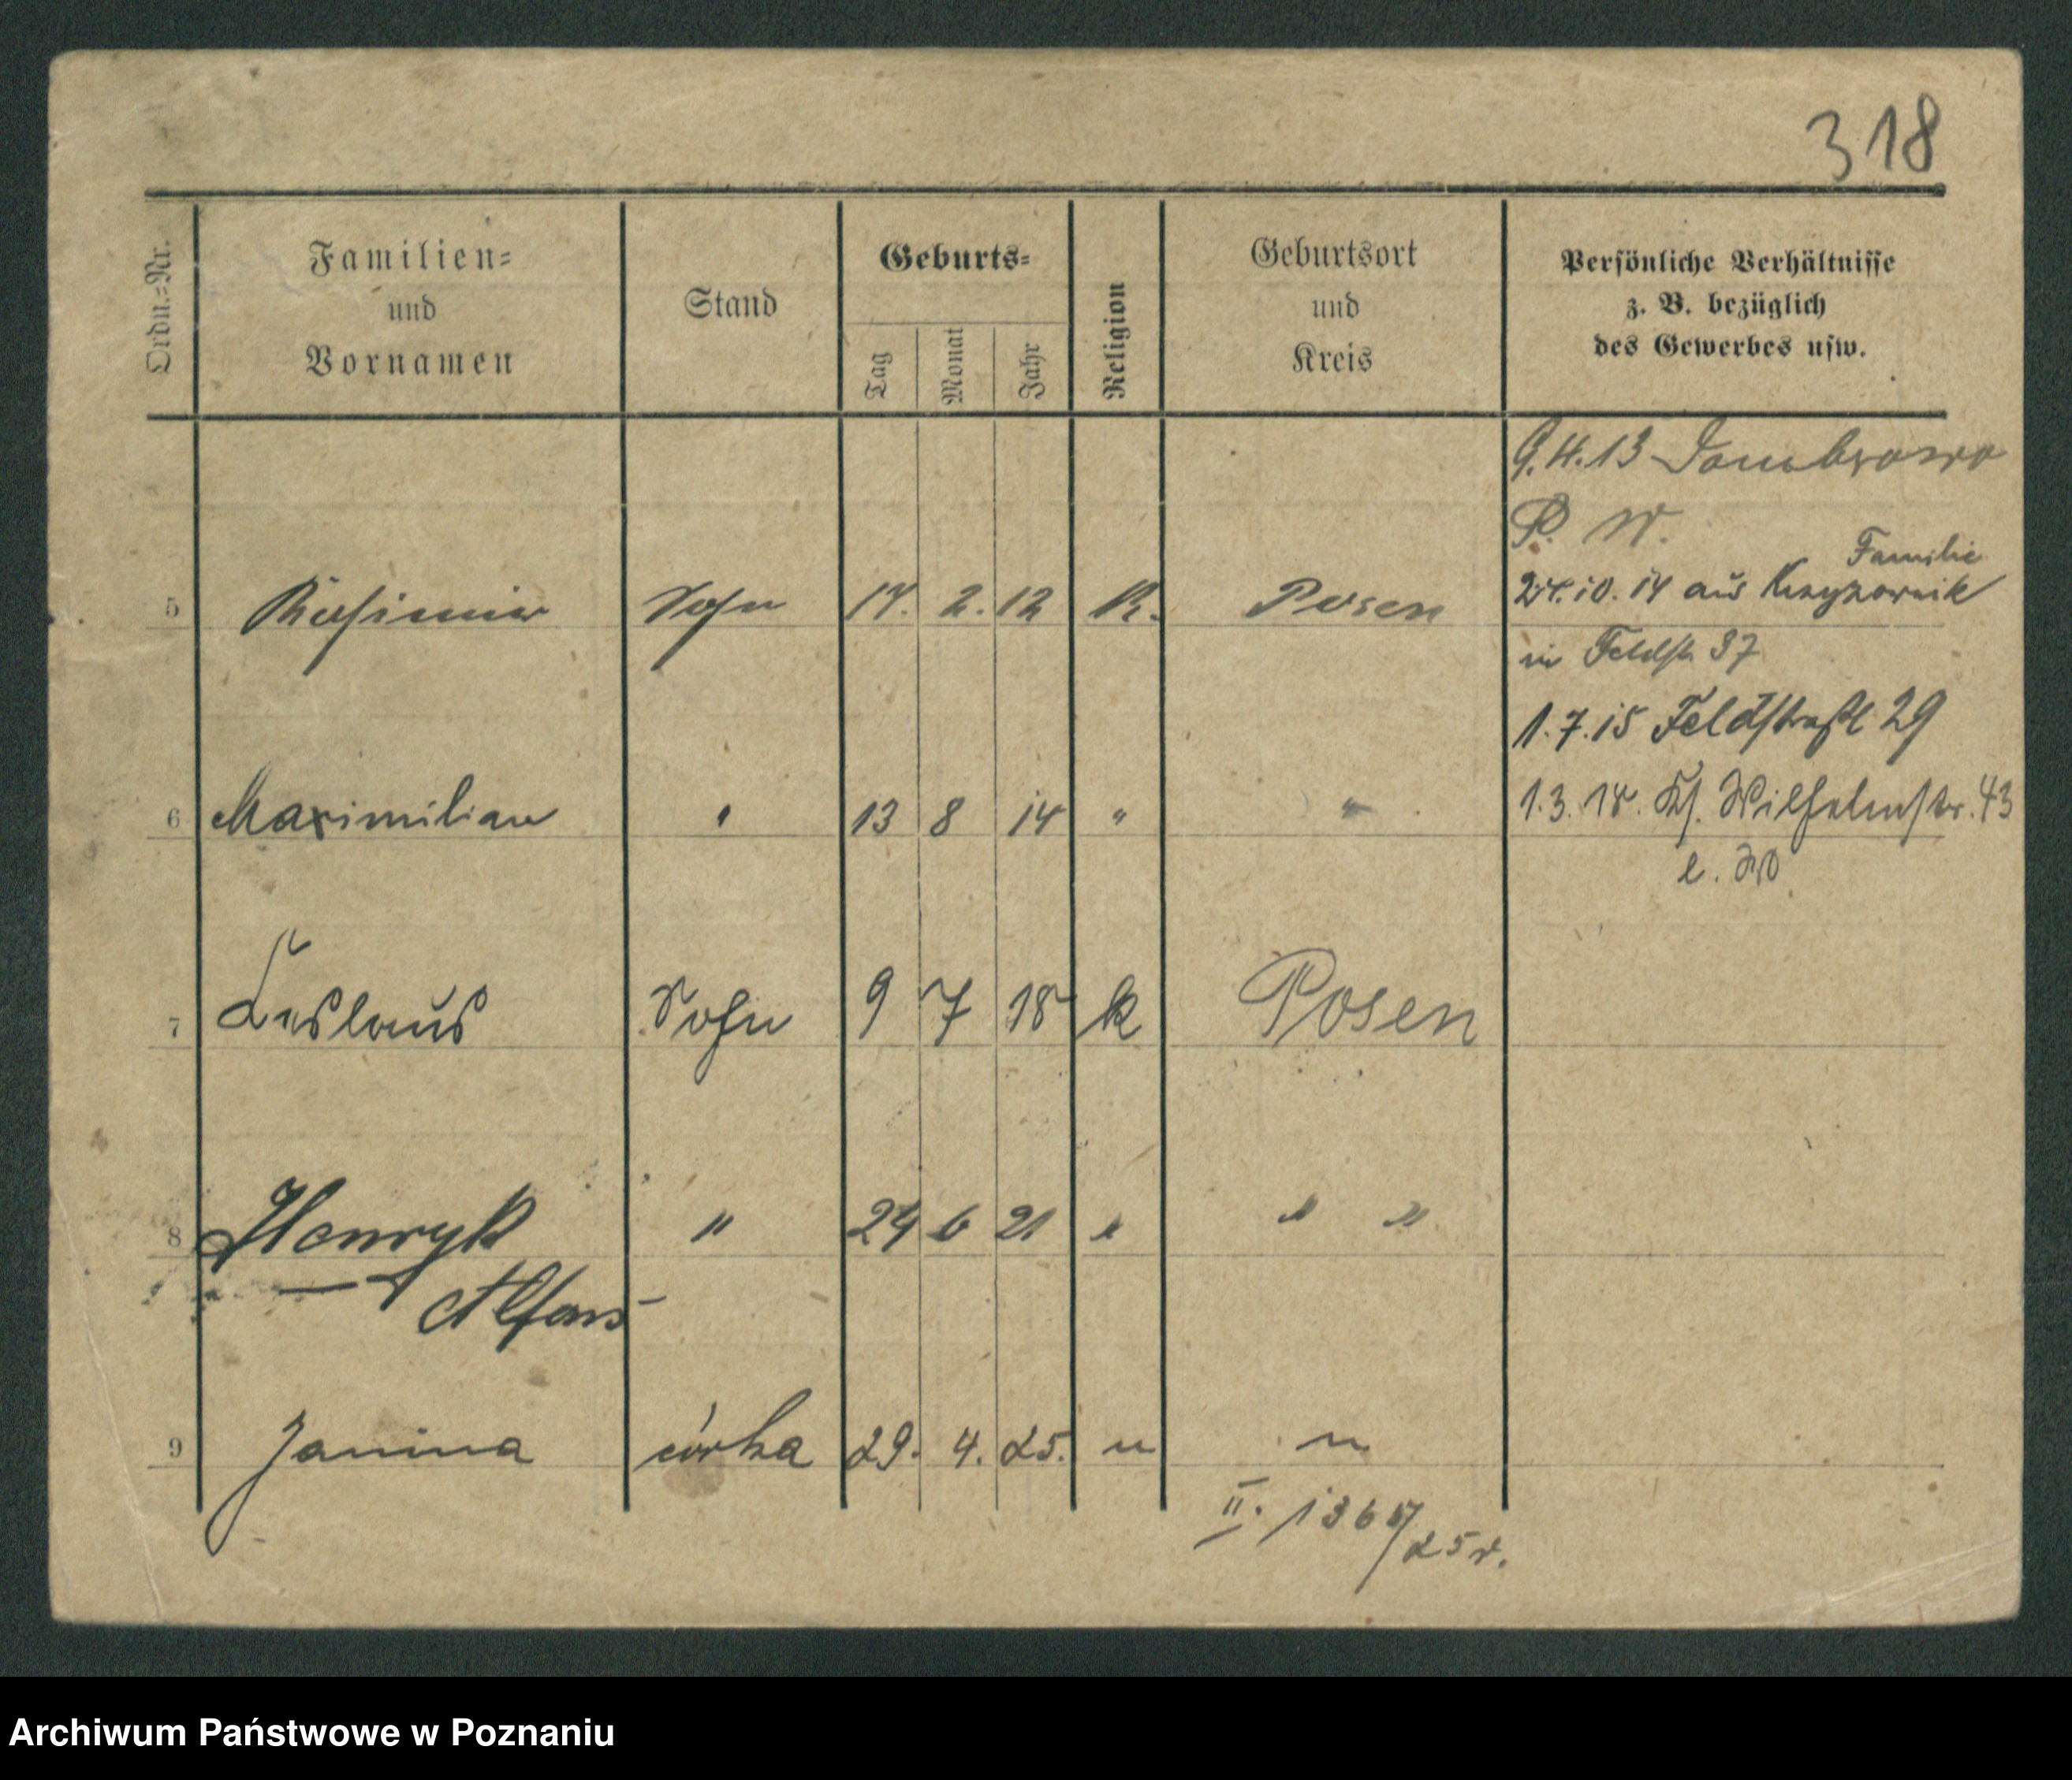 318
Ordn.=Nr.
Familien=
und
Vornamen
Stand
Geburts=
Tag
Monat
Jahr
Religion
Geburtsort
und
Kreis
Persönliche Verhältnisse
z. B. bezüglich
des Gewerbes usw.
9.4.13 Dombrowo
P. W.
Familie
5 Kasimir Sohn 14. 2. 12 K. Posen 24.10.14 aus Krzyzownik
in Feldstr. 37
1.7.15 Feldstraße 29
6 Maximilian " 13 8 14 " " 1.3.18. Ks. Wilhelmstr. 43
7 Leslaus Sohn 9 7 18 k Posen
8 Henryk " 24 6 21 " " "
Alfons
9 Janina córka 29. 4. 25. " "
II. 1365/25 r.
Archiwum Państwowe w Poznaniu